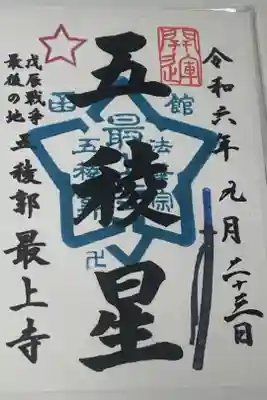 開運
令和六年九月二十三日
五稜星
函館
法華宗
最
五稜郭
卍
戊辰戦争
最後の地
五稜郭最上寺